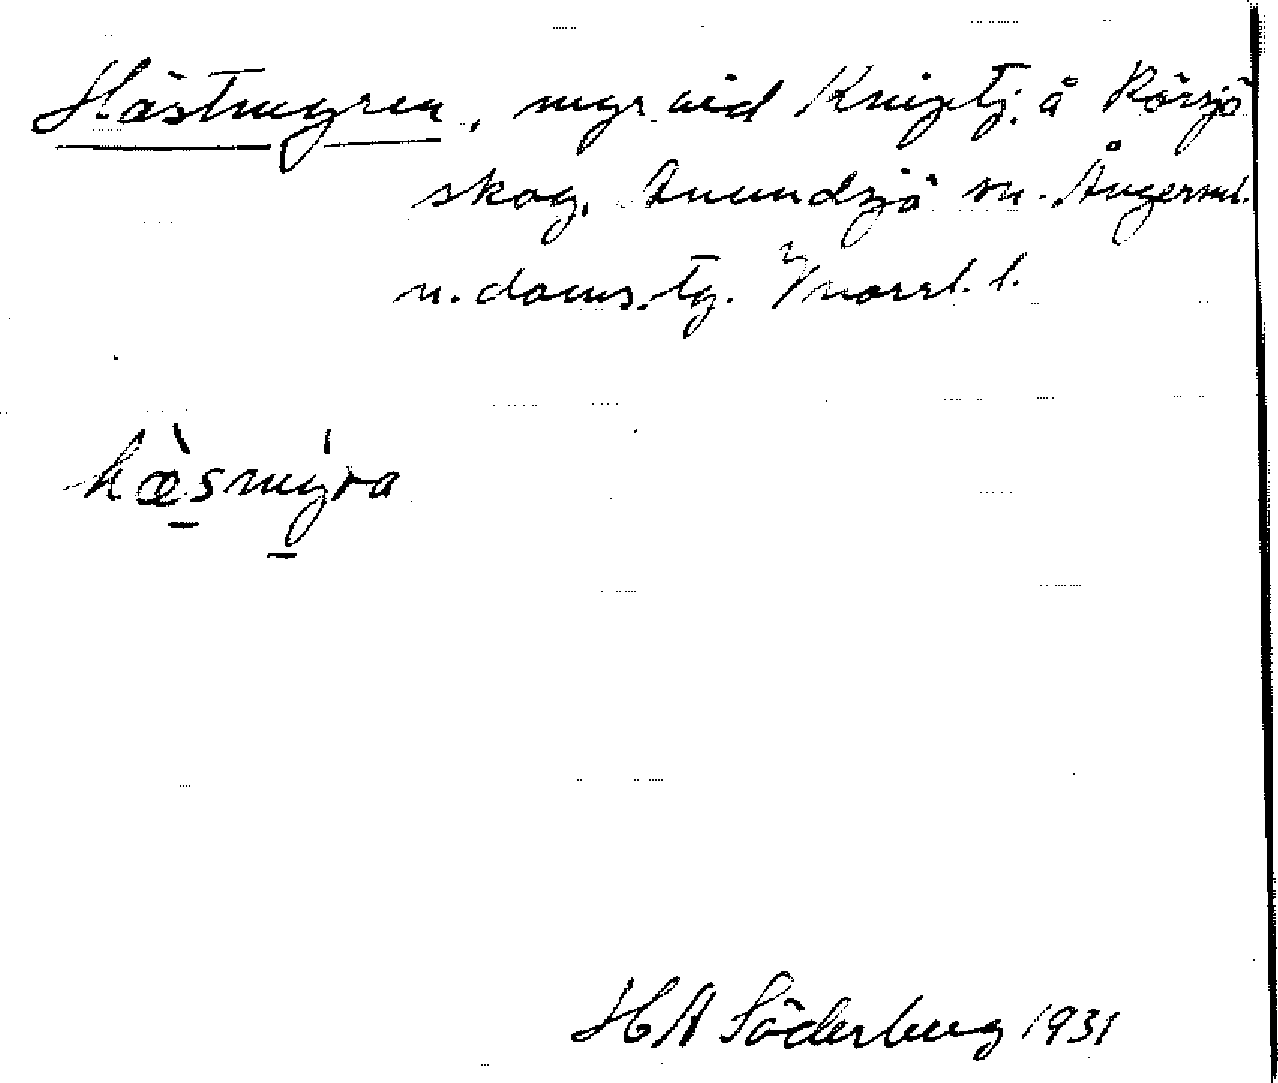 Hästmyren, myr vid Kniptj. å Rörsjö
skog, Anundsjö sn. Ångerml.
n. doms. tg. Norrl. l.
hæ̀smýra
HA Söderberg 1931